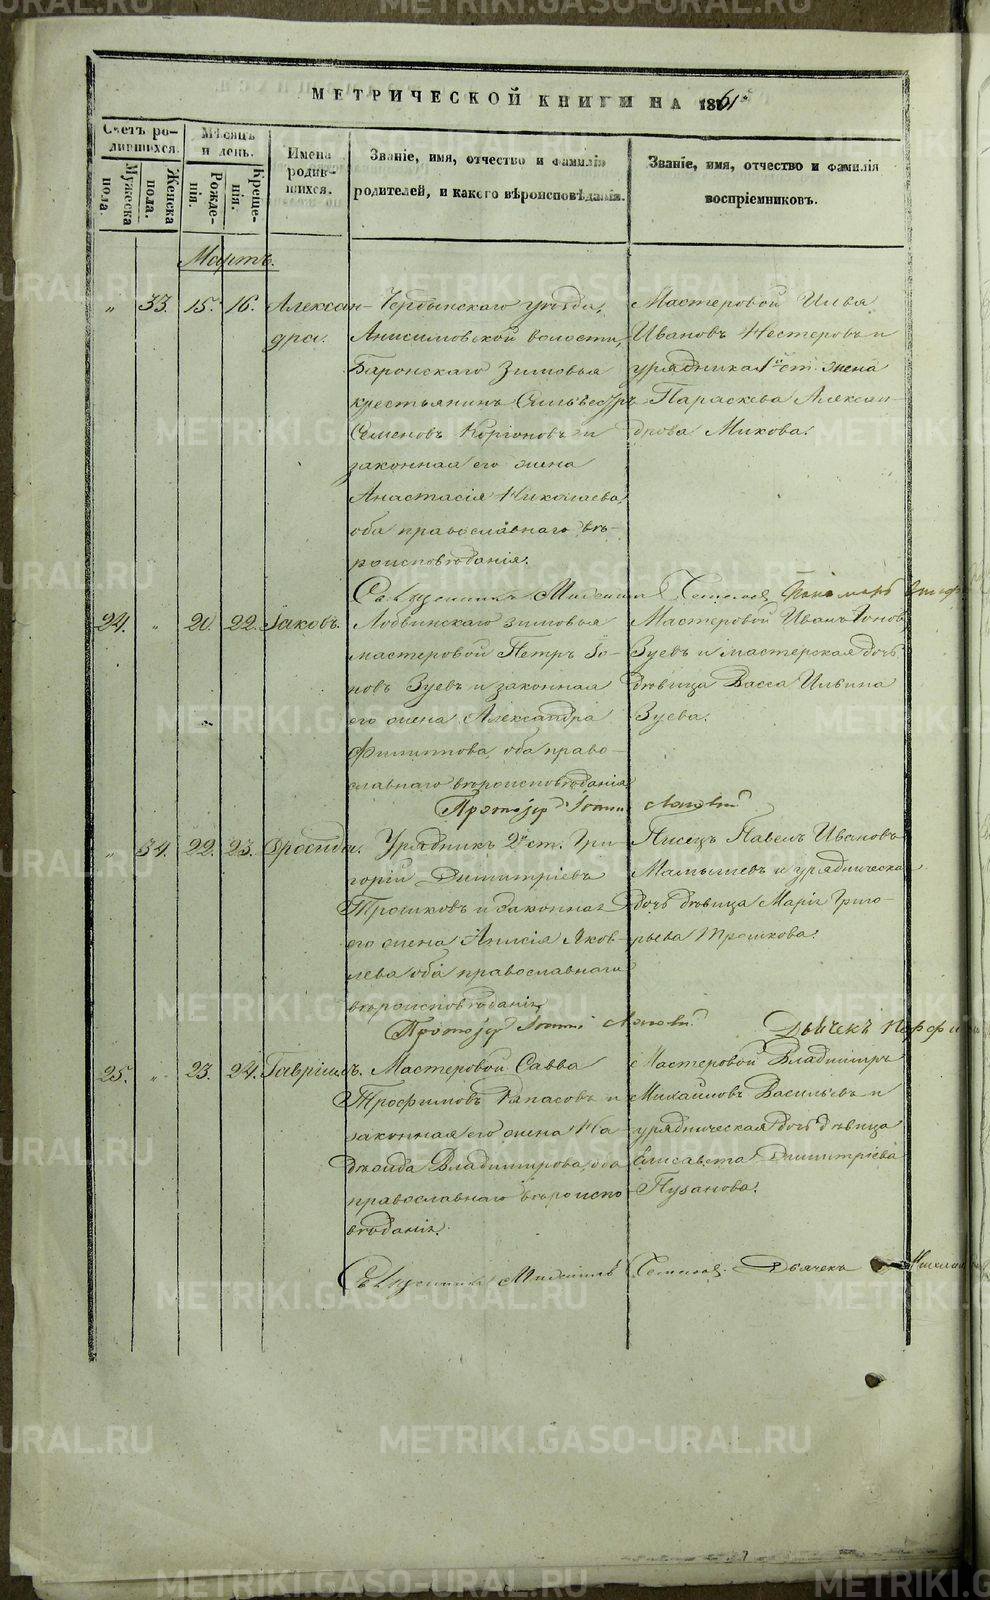 METRIKI.GASO-URAL.RU
МЕТРИЧЕСКОЙ КНИГИ НА 1861й
Счетъ родившихся.
Мужеска пола.
Женска пола.
Мѣсяцъ и день.
Рожденія.
Крещенія.
Имена родившихся.
Званіе, имя, отчество и фамилія
родителей, и какого вѣроисповѣданія.
Званіе, имя, отчество и фамилія
воспріемниковъ.
Мартъ.
„ 33. 15. 16. Алексан-
дра.
Чердынскаго уѣзда,
Анисимовской волости,
Баронскаго Зимовья
крестьянинъ Сильвестръ
Семеновъ и
законная его жена
Анастасія Николаева,
оба православнаго вѣ-
роисповѣданія.
Мастеровой Илья
Ивановъ Нестеровъ и
урядника 1й ст. жена
Параскева Алексан-
дрова Микова.
Священникъ Пономарь
24. „ 20. 22. Іаковъ.
Лодвинскаго зимовья
мастеровой Петръ Іо-
новъ Зуевъ и законная
его жена Александра
Филиппова, оба право-
славнаго вѣроисповѣданія
Мастеровой Иванъ Іоновъ
Зуевъ и мастерская дочь
дѣвица Васса Ильина
Зуева.
Протоіер Іоаннъ
„ 34. 22. 23.
Урядникъ 2й ст. Гри-
горій Димитріевъ
Трошковъ и законная
его жена Анисія Яков-
лева оба православнаго
вѣроисповѣданія.
Писецъ Павелъ Ивановъ
Мамышевъ и урядническая
дочь дѣвица Марія Григо-
рьева Трошкова.
Протоіер Іоаннъ
Дьячекъ
25. „ 23. 24. Гавріилъ.
Мастеровой Савва
Трофимовъ и
законная его жена На-
дежда Владимірова, оба
православнаго вѣроиспо-
вѣданія.
Мастеровой Владиміръ
Михайловъ Васильевъ и
урядническая дочь дѣвица
Елисавета Димитріева
Пузанова.
Священникъ Дьячекъ